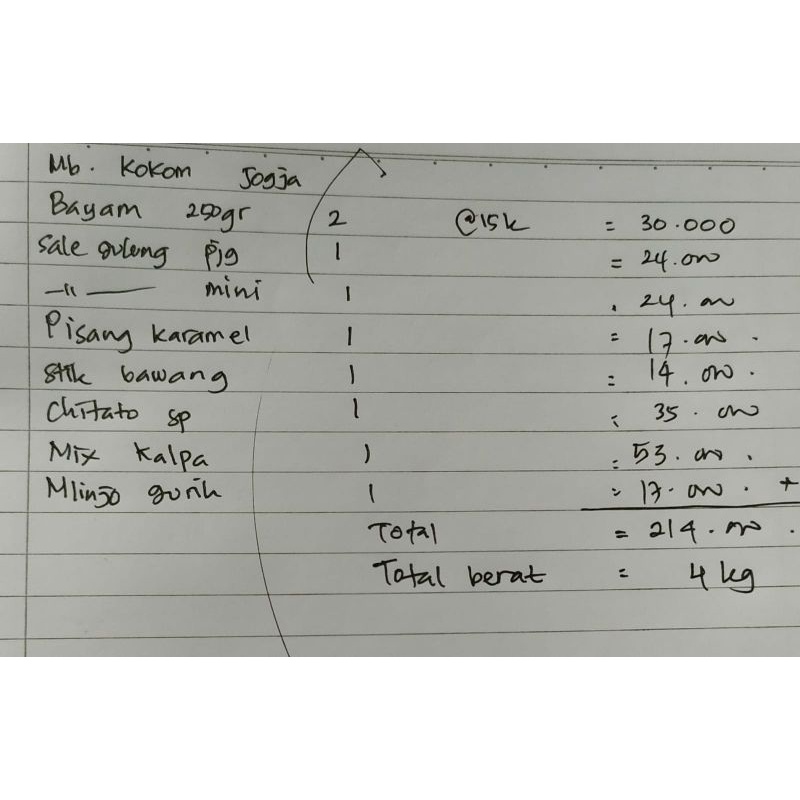 Mb. Kokom Jogja
Bayam 250gr 2 @15k = 30.000
Sale guleng pjg 1 = 24.000
-"- mini 1 . 24.000
Pisang karamel 1 = 17.000.
Stik bawang 1 = 14.000.
Chitato sp 1 = 35.000
Mix Kalpa 1 = 53.000.
Mlinjo gurih 1 = 17.000. +
Total = 214.000.
Total berat = 4 kg